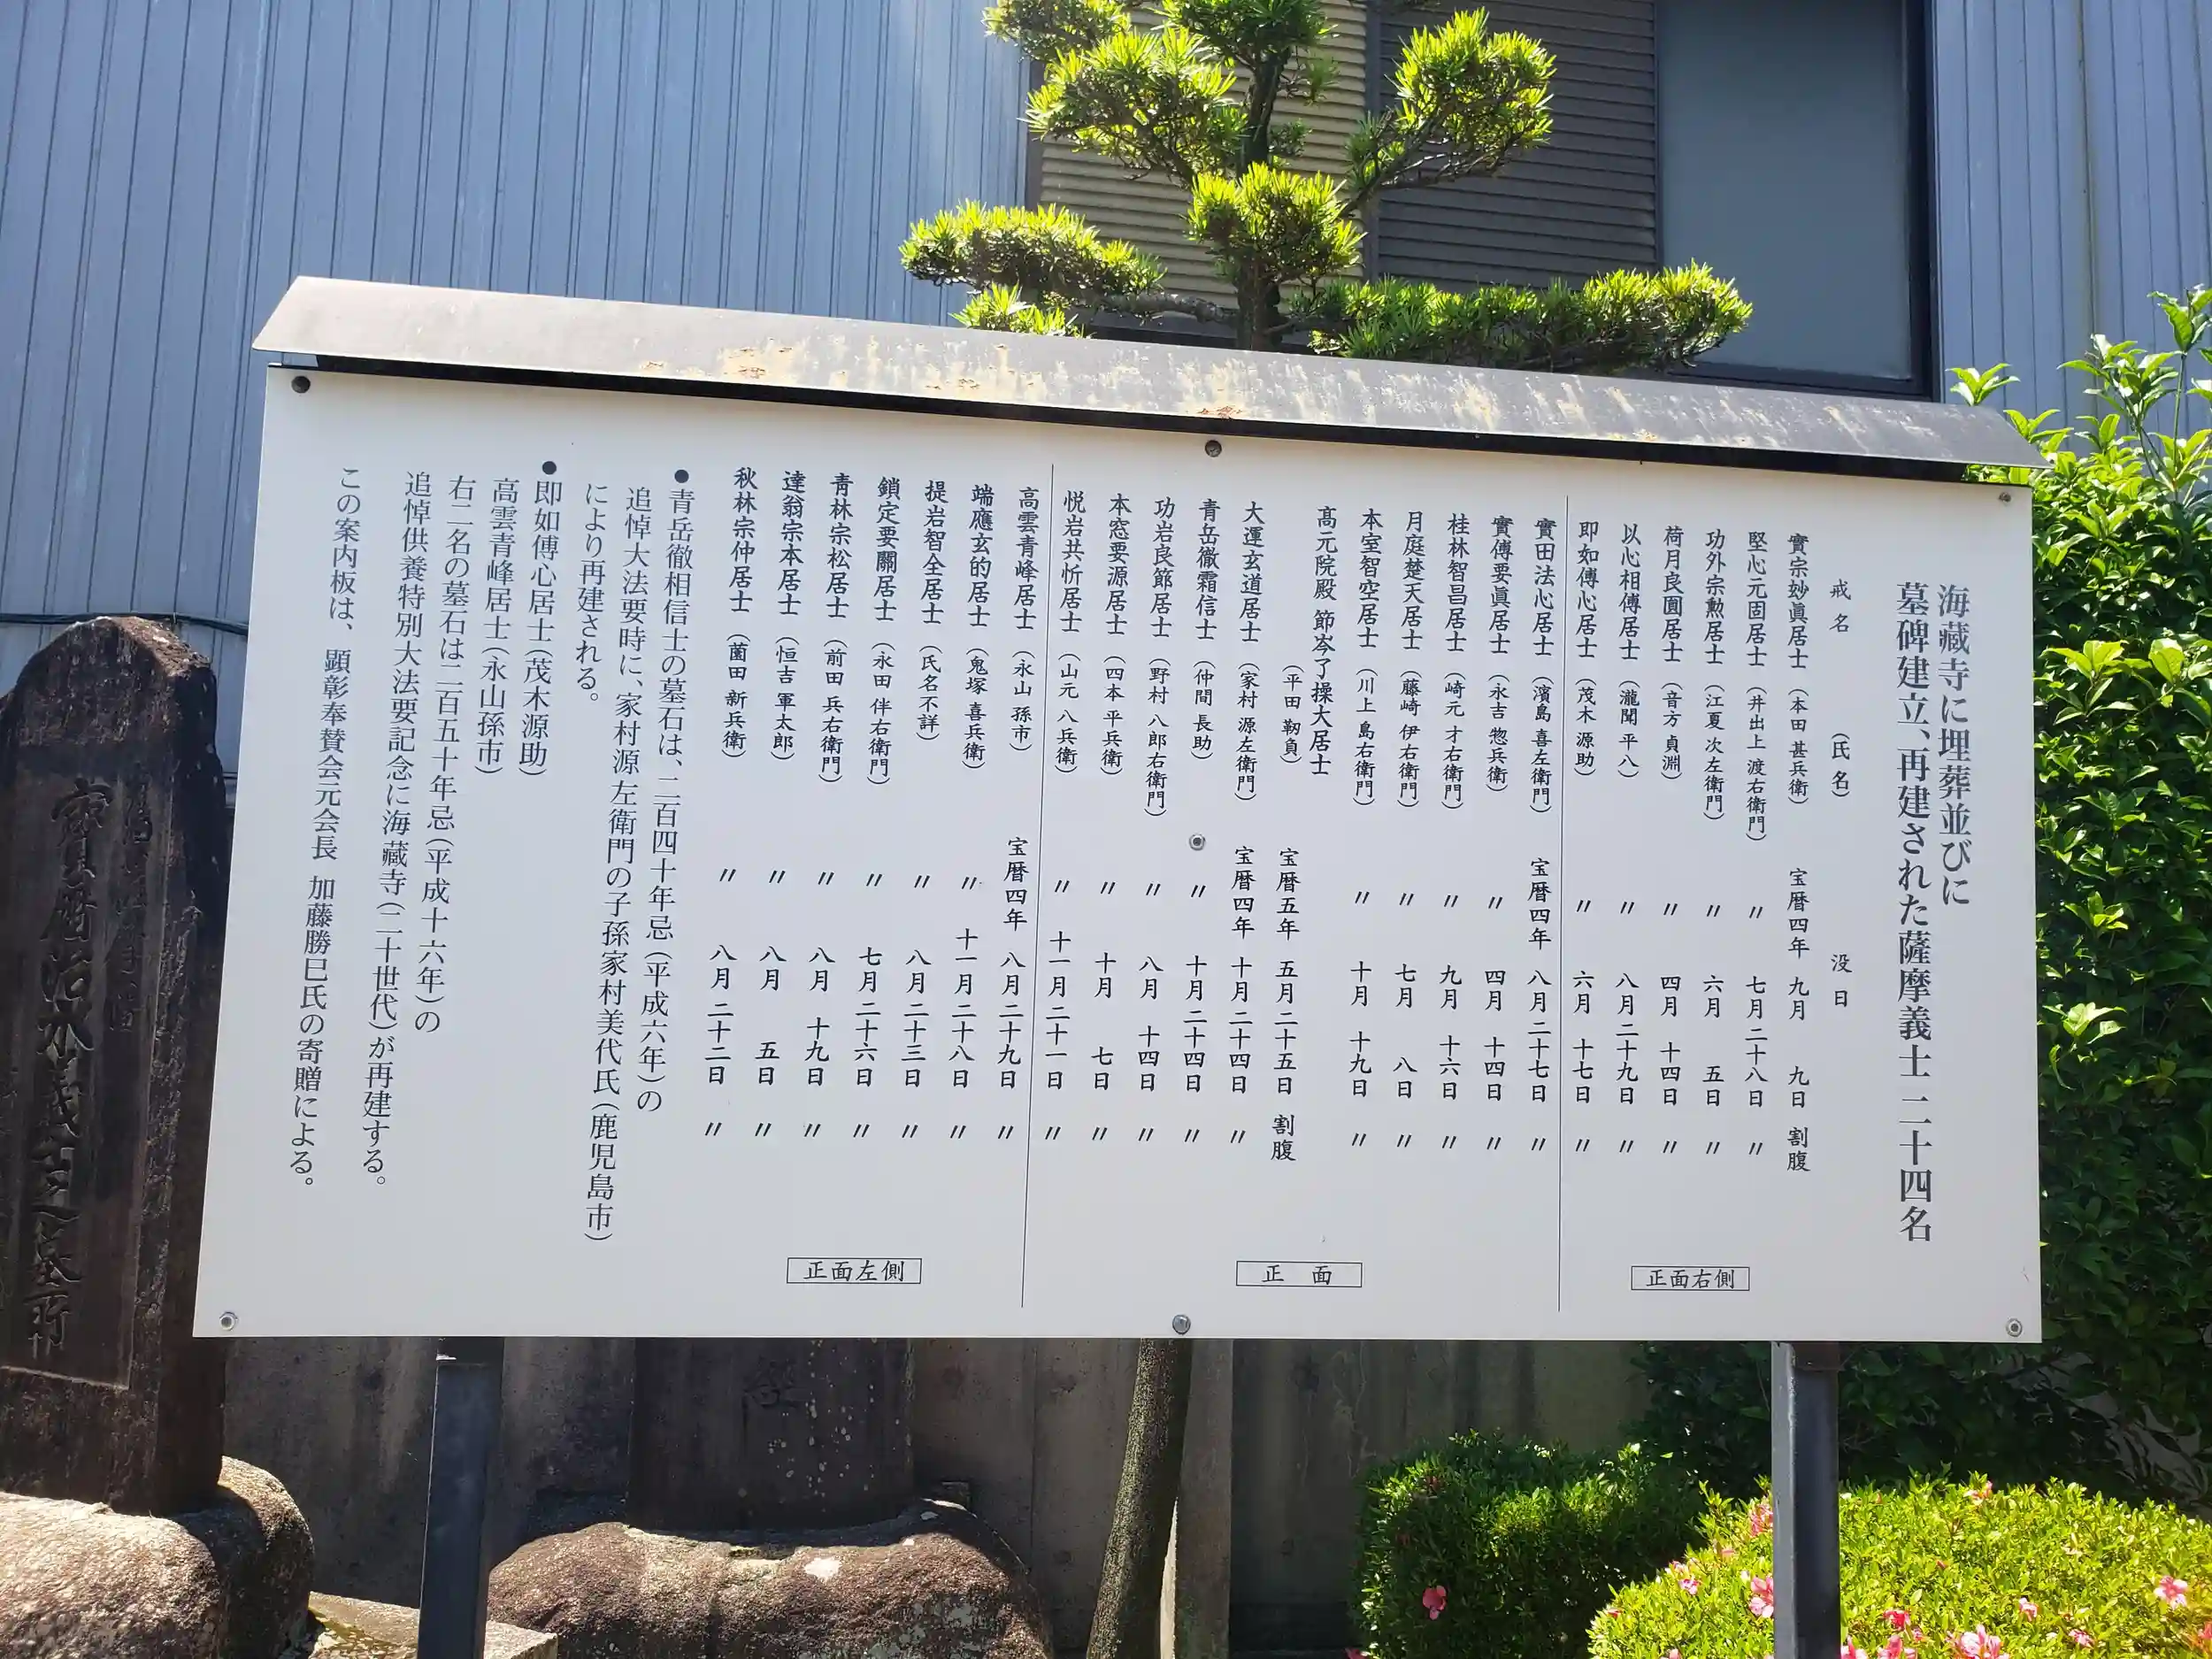 海蔵寺に埋葬並びに
墓碑建立、再建された薩摩義士二十四名
戒名 （氏名） 没日
實宗妙眞居士（本田 甚兵衛） 宝暦四年 九月 九日 割腹
堅心元固居士（井出上 渡右衛門） 〃 七月二十八日 〃
功外宗勲居士（江夏 次左衛門） 〃 六月 五日 〃
荷月良圓居士（音方 貞淵） 〃 四月 十四日 〃
以心相傳居士（瀧聞 平八） 〃 八月二十九日 〃
即如傳心居士（茂木 源助） 〃 六月 十七日 〃
正面右側
實田法心居士（濱島 喜左衛門） 宝暦四年 八月二十七日 〃
實傳要眞居士（永吉 惣兵衛） 〃 四月 十四日 〃
桂林智昌居士（崎元 才右衛門） 〃 九月 十六日 〃
月庭楚天居士（藤崎 伊右衛門） 〃 七月 八日 〃
本室智空居士（川上 島右衛門） 〃 十月 十九日 〃
高元院殿 節岑了操大居士
（平田 靭負） 宝暦五年 五月二十五日 割腹
大運玄道居士（家村 源左衛門） 宝暦四年 十月二十四日 〃
青岳徹霜信士（仲間 長助） 〃 十月二十四日 〃
功岩良節居士（野村 八郎右衛門） 〃 八月 十四日 〃
本窓要源居士（四本 平兵衛） 〃 十月 七日 〃
悦岩共忻居士（山元 八兵衛） 〃 十一月二十一日 〃
正 面
高雲青峰居士（永山 孫市） 宝暦四年 八月二十九日 〃
端應玄的居士（鬼塚 喜兵衛） 〃 十一月二十八日 〃
提岩智全居士（氏名不詳） 〃 八月二十三日 〃
鎖定要關居士（永田 伴右衛門） 〃 七月二十六日 〃
青林宗松居士（前田 兵右衛門） 〃 八月 十九日 〃
達翁宗本居士（恒吉 軍太郎） 〃 八月 五日 〃
秋林宗仲居士（薗田 新兵衛） 〃 八月二十二日 〃
正面左側
●青岳徹相信士の墓石は、二百四十年忌（平成六年）の
追悼大法要時に、家村源左衛門の子孫家村美代氏（鹿児島市）
により再建される。
●即如傳心居士（茂木源助）
高雲青峰居士（永山孫市）
右二名の墓石は二百五十年忌（平成十六年）の
追悼供養特別大法要記念に海蔵寺（二十世代）が再建する。
この案内板は、顕彰奉賛会元会長 加藤勝巳氏の寄贈による。